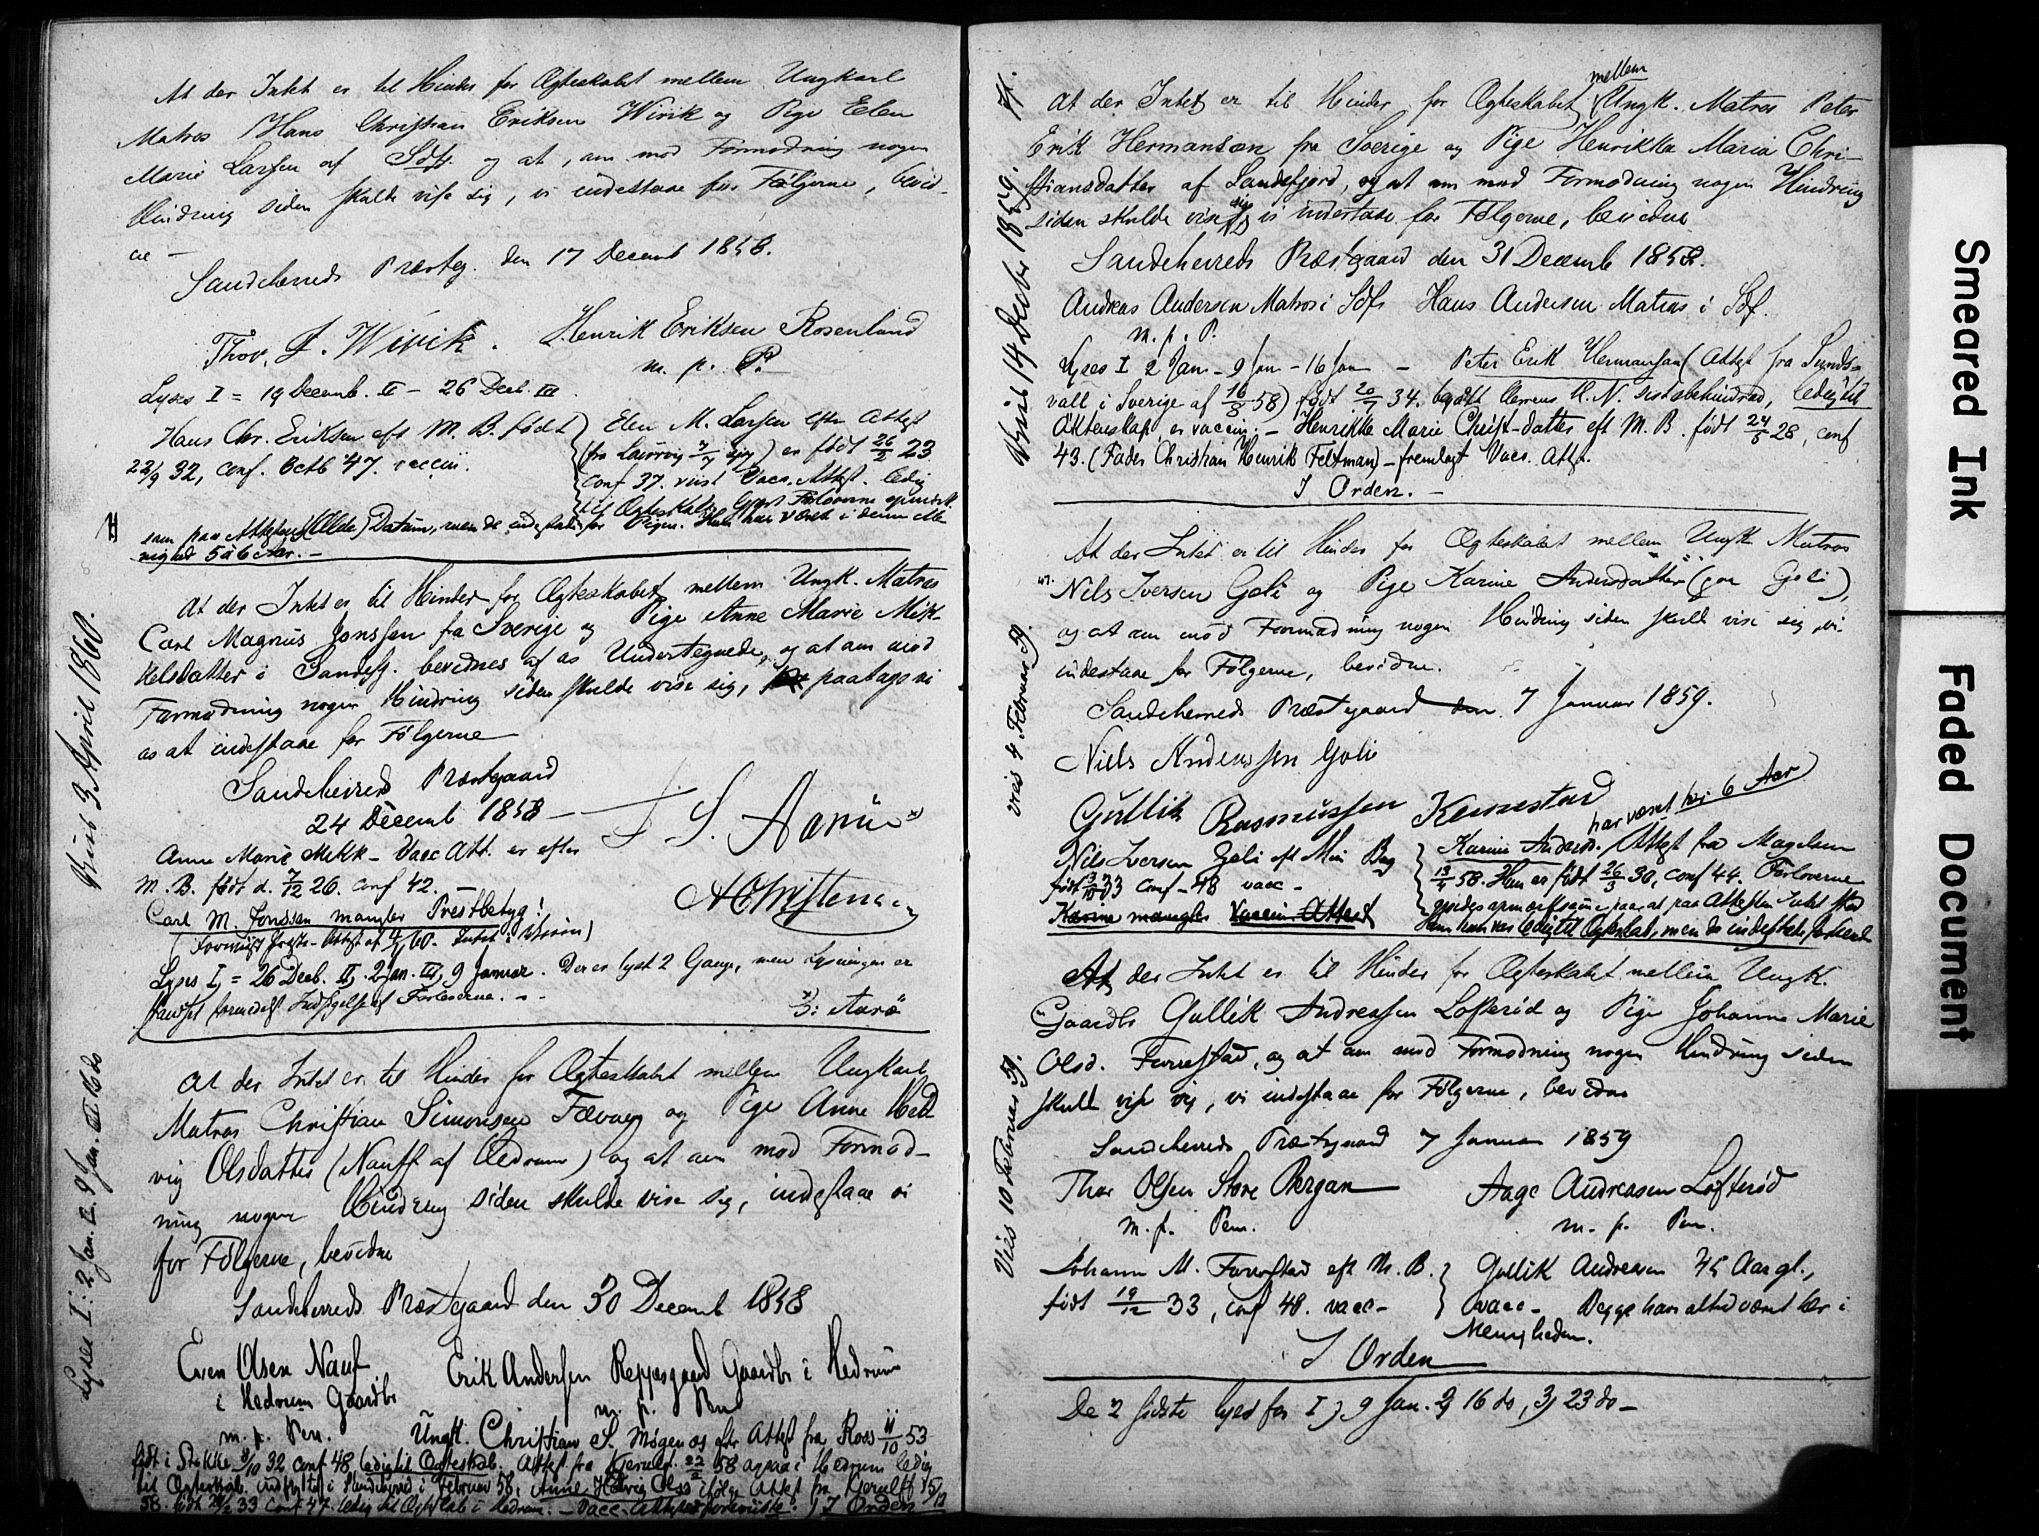 At der Intet er til Hinder for Ægteskabet mellem Ungkarl
Matros Hans Christian Eriksen Wivik og Pige Elen
Marie Larsen af Sdfj. og at, om mod Formodning nogen
Hindring siden skulde vise sig, vi indestaae for Følgerne, bevid-
ne —
Sandeherreds Præsteg. den 17 Decemb 1858.
Thov. J. Wivik. Henrik Eriksen Rosenlund
m. p. P.
Lyses I = 19 Decemb. II — 26 Decb. III
Hans Chr. Eriksen eft M. B. født
22/9 32, conf. Octb 47. vaccin.
Elen M. Larsen efter Attest
(fra Laurvig) er født 26/2 23
conf 37. viist Vacc. Attest. ledig
til Ægteskab. Gjort Forloverne opmærk
som paa Attestens Ælde, Datum, men de indestode for Pigen. Hun har været i denne Me-
nighed 5 à 6 Aar. —
At der Intet er til Hinder for Ægteskabet mellem Ungk. Matros
Carl Magnus Jonssen fra Sverige og Pige Anne Marie Mik-
kelsdatter i Sandefj. bevidnes af os Undertegnede, og at om mod
Formodning nogen Hindring siden skulde vise sig, paatage vi
os at indestaae for Følgerne
Sandeherreds Præstgaard
24 Decemb 1858
J. S. Aarüe
A Christensen
Anne Marie Mikk- Vacc Att. er efter
M. B. født d. 7/12 26. conf 42.
Carl M. Jonssen mangler Prestbetyg!
Lyses I, = 26 Decb. II, 2 Jan. III, 9 Januar. Der er lyst 2 Gange, men Lysningen er
standset formedelst Indsigelse af Forloverne. —
ɔ: Aarö
Viet 3 April 1860.
At der Intet er til Hinder for Ægteskabet mellem Ungkarl
Matros Christian Simonsen Fevang og Pige Anne Hed-
vig Olsdatter (Nauff af Hedrum) og at om mod Formod-
ning nogen Hindring siden skulde vise sig, indestaae vi
for Følgerne, bevidne
Sandeherreds Præstgaard den 30 Decemb 1858
Even Olsen Nauf
i Hedrum Gaardbr
m. p. Pen.
Erik Andersen Reppesgaard Gaardbr i Hedrum
m. p. Pen
Ungk. Christian S. efter Attest fra Roos 11/10 53
født i Stokke 8/10 32 conf 48 ledig til Ægteskab. Attest fra Kjerulf 22/2 58 ogsaa i Hedrum ledig
til Ægteskab. indflyttet i Sandeherred i Februar 58. Anne Hedvig Olsd ifølge Attest fra Kjerulff 15/12
58. født 33 conf 47. ledig til Ægteskab i Hedrum. — Vacc. Attester foreviiste. I Orden
Lyses I: 2 Jan. II. 9 Jan. III 16 do
At der Intet er til Hinder for Ægteskabet mellem Ungk. Matros Peter
Erik Hermansen fra Sverige og Pige Henrikke Maria Chri-
stiansdatter af Sandefjord, og at om mod Formodning nogen Hindring
siden skulde vise sig vi indestaae for Følgerne, bevidne
Sandeherreds Præstgaard den 31 Decemb 1858.
Andreas Andersen Matros i Sdfj — Hans Andersen Matros i Sdf.
m. p. P.
Lyses I 2 Jan — 9 Jan — 16 Jan — Peter Erik Hermansen (Attest fra Sunds-
vall i Sverige af 16/8 58) født 20/7 34. K. N. ledig til
Äktenskap, er vaccin. — Henrikke Marie Christ-datter eft M. B. født 24/5 28, conf
43. (Fader Christian Henrik Feltman) — fremlagt Vacc. Attst.
I Orden. —
Viet 14 Decbr 1859.
At der Intet er til Hinder for Ægteskabet mellem Ungk. Matros
Nils Iversen Goli og Pige Karine Andersdatter (paa Goli),
og at om mod Formodning nogen Hindring siden skulde vise sig, vi
indestaae for Følgerne, bevidne.
Sandeherreds Præstgaard den 7 Januar 1859.
Niels Anderssen Goli
Gullik Rasmussen Kemestad
har været her 6 Aar
Nils Iversen Goli eft Min Bog
født 33 conf — 48 vacc —
Karine mangler Vaccin Attest
Karine Andersd. Attest fra Magelssen
13/4 58. Hun er født 26/3 30, conf 44. Forloverne
gjordes opmærksomme paa, at paa Attesten Intet stod
om hun var ledig til Ægteskab, men de indestode
viet 4 Februar 59.
At der Intet er til Hinder for Ægteskabet mellem Ungk.
Gaardbr Gullik Andreassen Lofterød og Pige Johanne Marie
Olsd. Furrestad, og at om mod Formodning nogen Hindring siden
skulde vise sig, vi indestaae for Følgerne, bevidne
Sandeherreds Præstgaard 7 Januar 1859
Thor Olsen Store Bergan
m. p. Pen.
Aage Andreasen Lofterød
m. p. Pen.
Johanne M. Furrestad eft M. B.
født 19/12 33, conf 48. vacc —
Gullik Andreasen 45 Aar gl.,
vacc — Begge har altid været her i
Menigheden.
I Orden
Viet 10 Februar 59.
De 2 sidste lyses for I, 9 Jan. 2, 16 do, 3, 23 do —
Smeared Ink
Faded Document